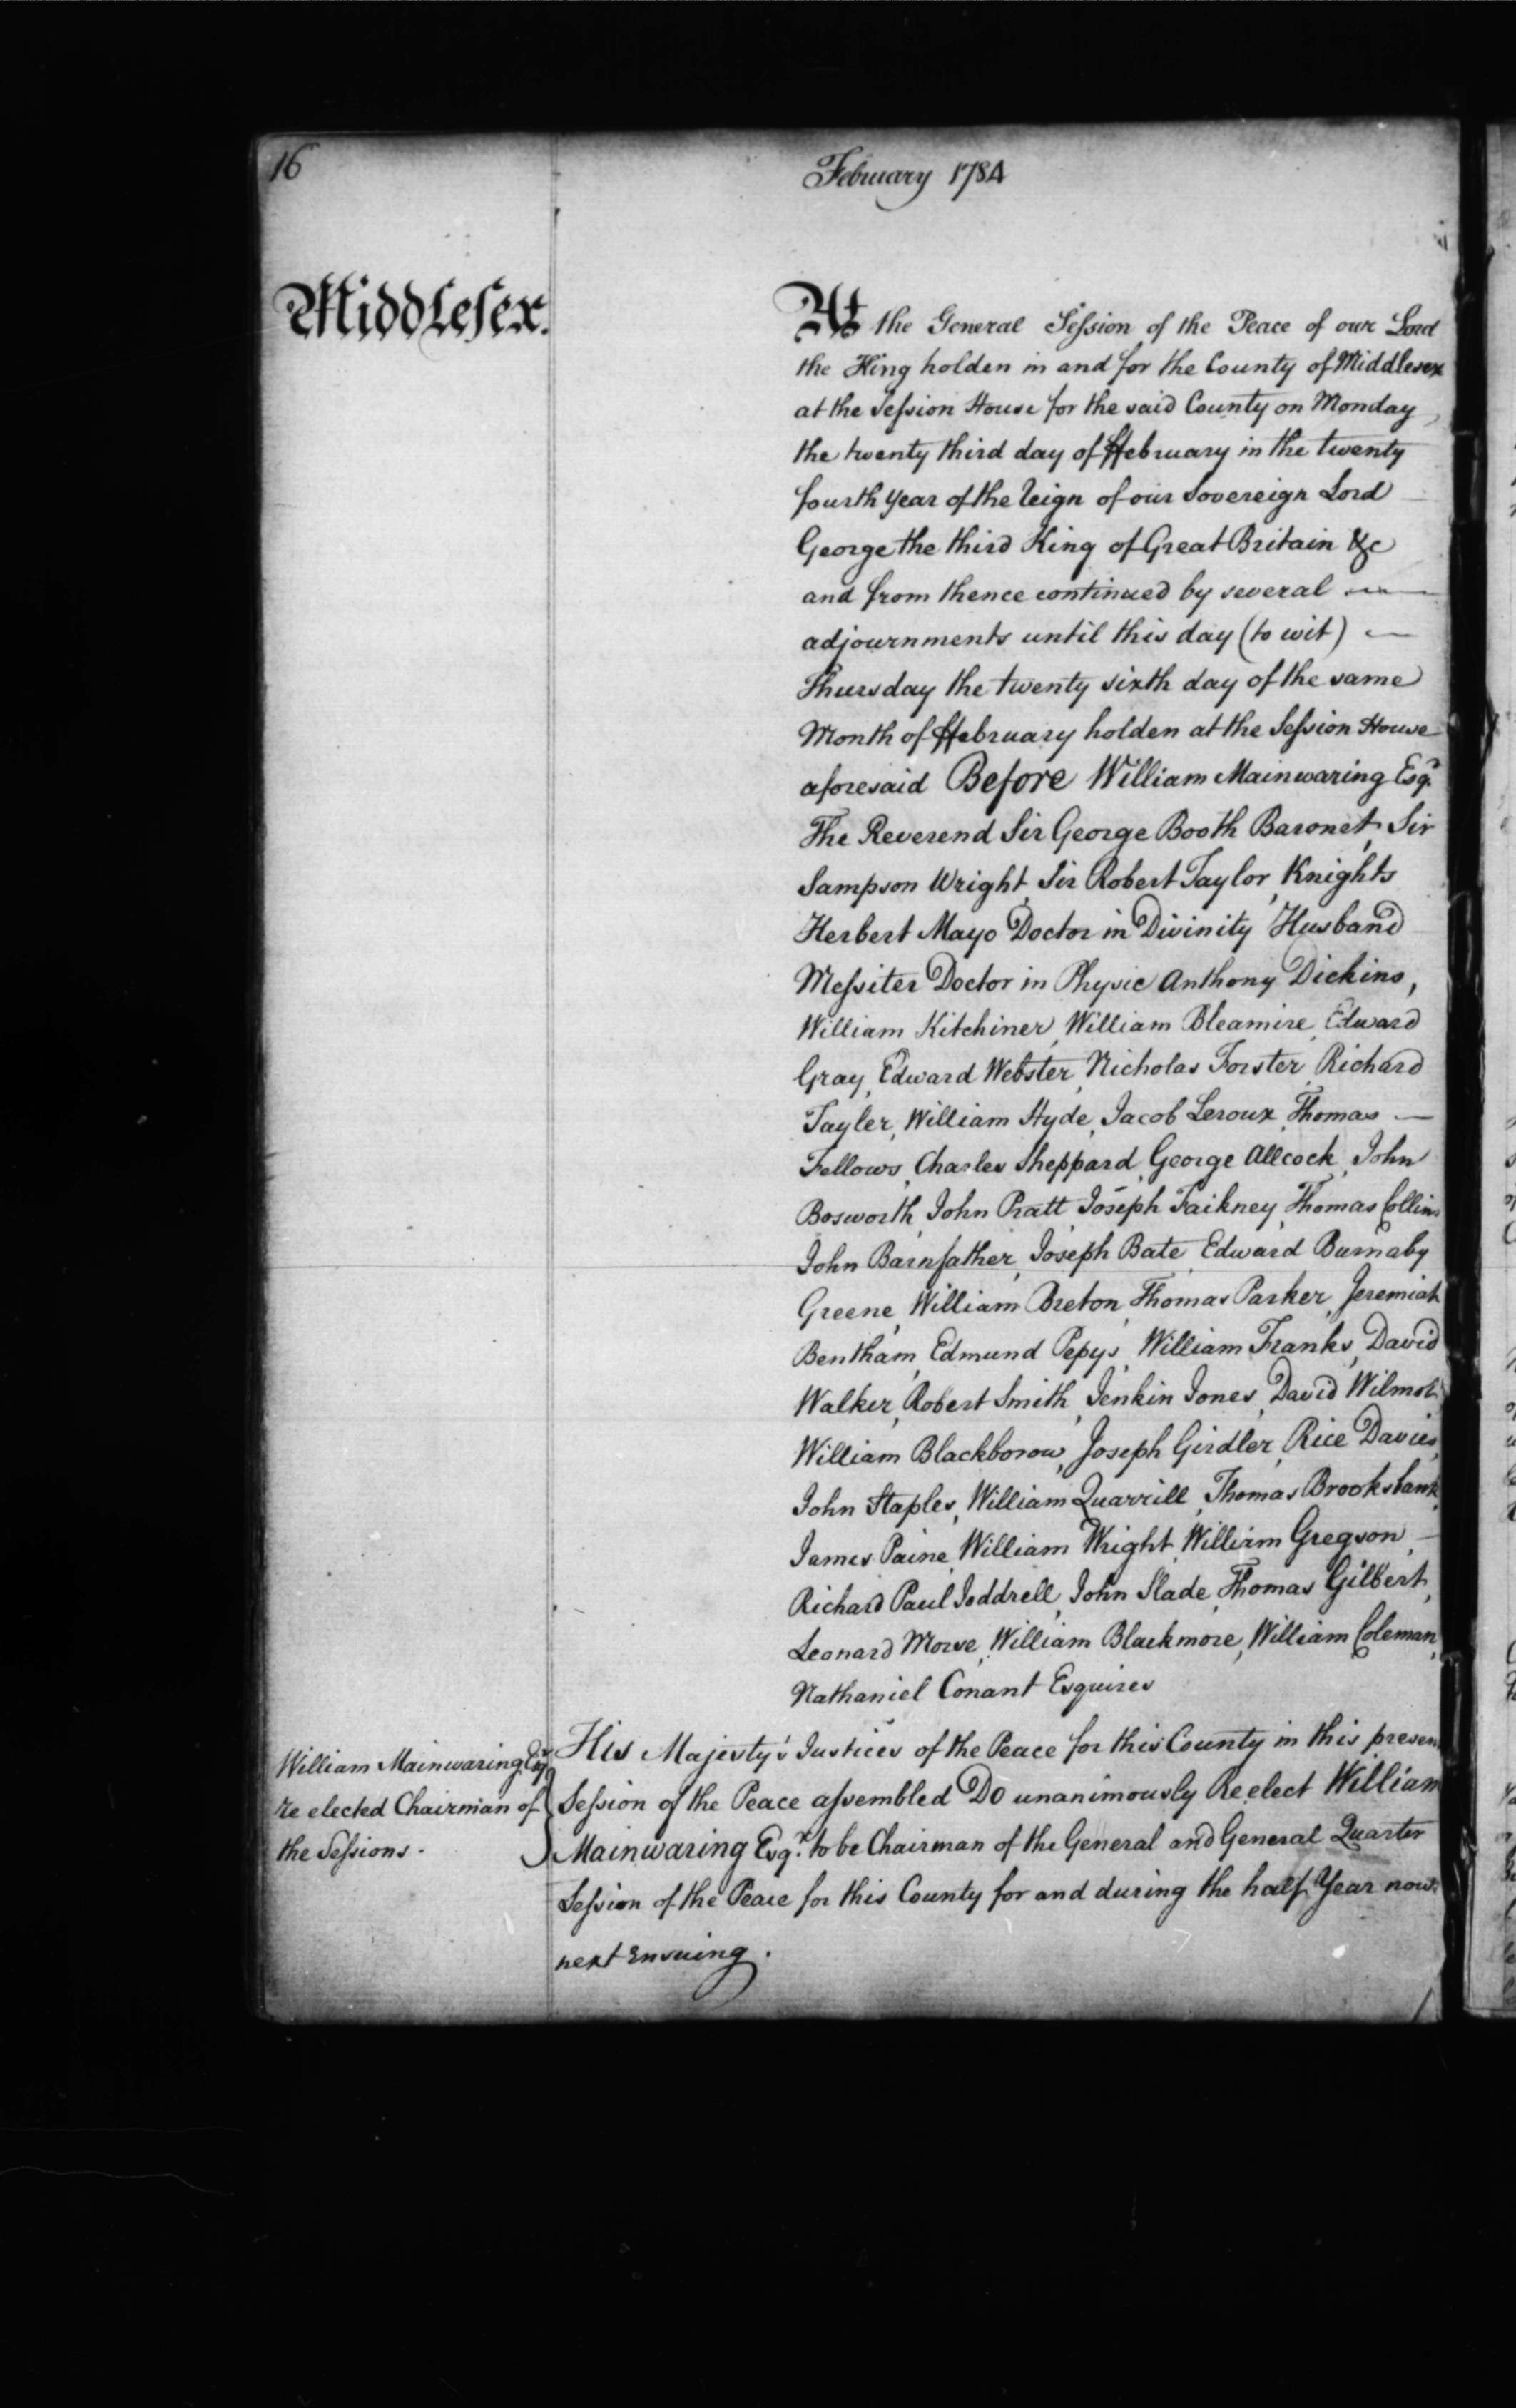 16
February 1784
Middlesex.
At the General Session of the Peace of our Lord
the King holden in and for the County of Middlesex
at the Session House for the said County on Monday
the twenty third day of ffebruary in the twenty
fourth Year of the Reign of our Sovereign Lord
George the third King of Great Britain &c
and from thence continued by several
adjournments until this day (to wit)
Thursday the twenty sixth day of the same
Month of ffebruary holden at the Session House
aforesaid Before William Mainwaring Esqr.
The Reverend Sir George Booth Baronet, Sir
Sampson Wright, Sir Robert Taylor, Knights
Herbert Mayo Doctor in Divinity Husband
Messiter Doctor in Physic Anthony Dickins,
William Kitchiner, William Bleamire, Edward
Gray, Edward Webster, Nicholas Forster, Richard
Tayler, William Hyde, Jacob Leroux, Thomas
Fellows, Charles Sheppard, George Allcock, John
Bosworth, John Pratt, Joseph Faikney, Thomas Collins
John Barnfather, Joseph Bate, Edward Burnaby
Greene, William Breton, Thomas Parker, Jeremiah
Bentham, Edmund Pepys, William Franks, David
Walker, Robert Smith, Jenkin Jones, David Wilmot
William Blackborow, Joseph Girdler, Rice Davies,
John Staples, William Quarrill, Thomas Brooksbank,
James Paine, William Wright, William Gregson,
Richard Paul Joddrell, John Slade, Thomas Gilbert,
Leonard Morse, William Blackmore, William Coleman,
Nathaniel Conant Esquires
William Mainwaring Esqr.
re elected Chairman of
the Sessions.
His Majesty's Justices of the Peace for this County in this presen
Session of the Peace assembled Do unanimously Re elect William
Mainwaring Esqr. to be Chairman of the General and General Quarter
Session of the Peace for this County for and during the half Year now
next Ensuing.